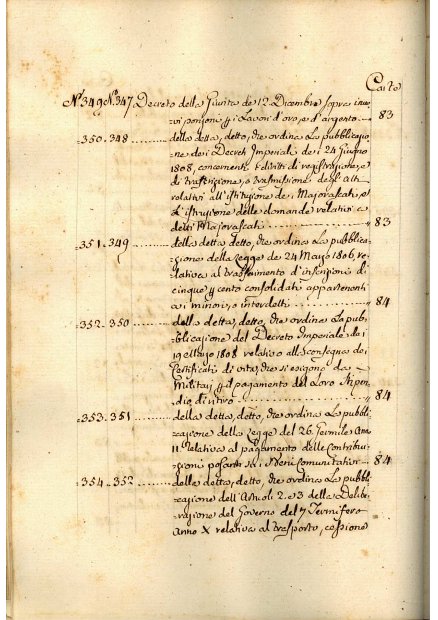 Carte
N.349 N.347. Decreto della Giunta de 12 Dicembre sopra
ponsoni p i Lavori d'oro, e d'argento 83
350.348 della detta, detto, che ordina la pubblicazio
ne dei Decreti Imperiali dei 24 Giugno
1808, concernenti i diritti di registrazione, e
di trascrizione, e trasmissione degl'Atti
relativi all'istituzione de Majoraschi, e
l'istruzione delle domande relative a
detti Majoraschi 83
351.349 della detta detto, che ordina la pubblica
zione della Legge de 24 Marzo 1806, re
lativa al trasferimento d'inscrizioni di
cinque p cento consolidati appartenenti
a i minori, o interdetti 84
352.350 della detta, detto, che ordina la pub
blicazione del Decreto Imperiale de
19 1808 relativo alla consegna dei
Certificati di vita, che si esigono da
Militari p il pagamento del Loro Stipen
dio, di ritiro 84
353.351 della detta, detto, che ordina la pubbli
cazione della Legge del 26 Germile An
11 relativa al pagamento delle Contribu
zioni posanti su i Beni Comunitativi 84
354.352 della detta, detto, che ordina la pubbli
cazione dell'Articoli 2. e 3 della Delibe
razione del Governo del 7 Termifero
Anno X relativa al trasporto, cessione